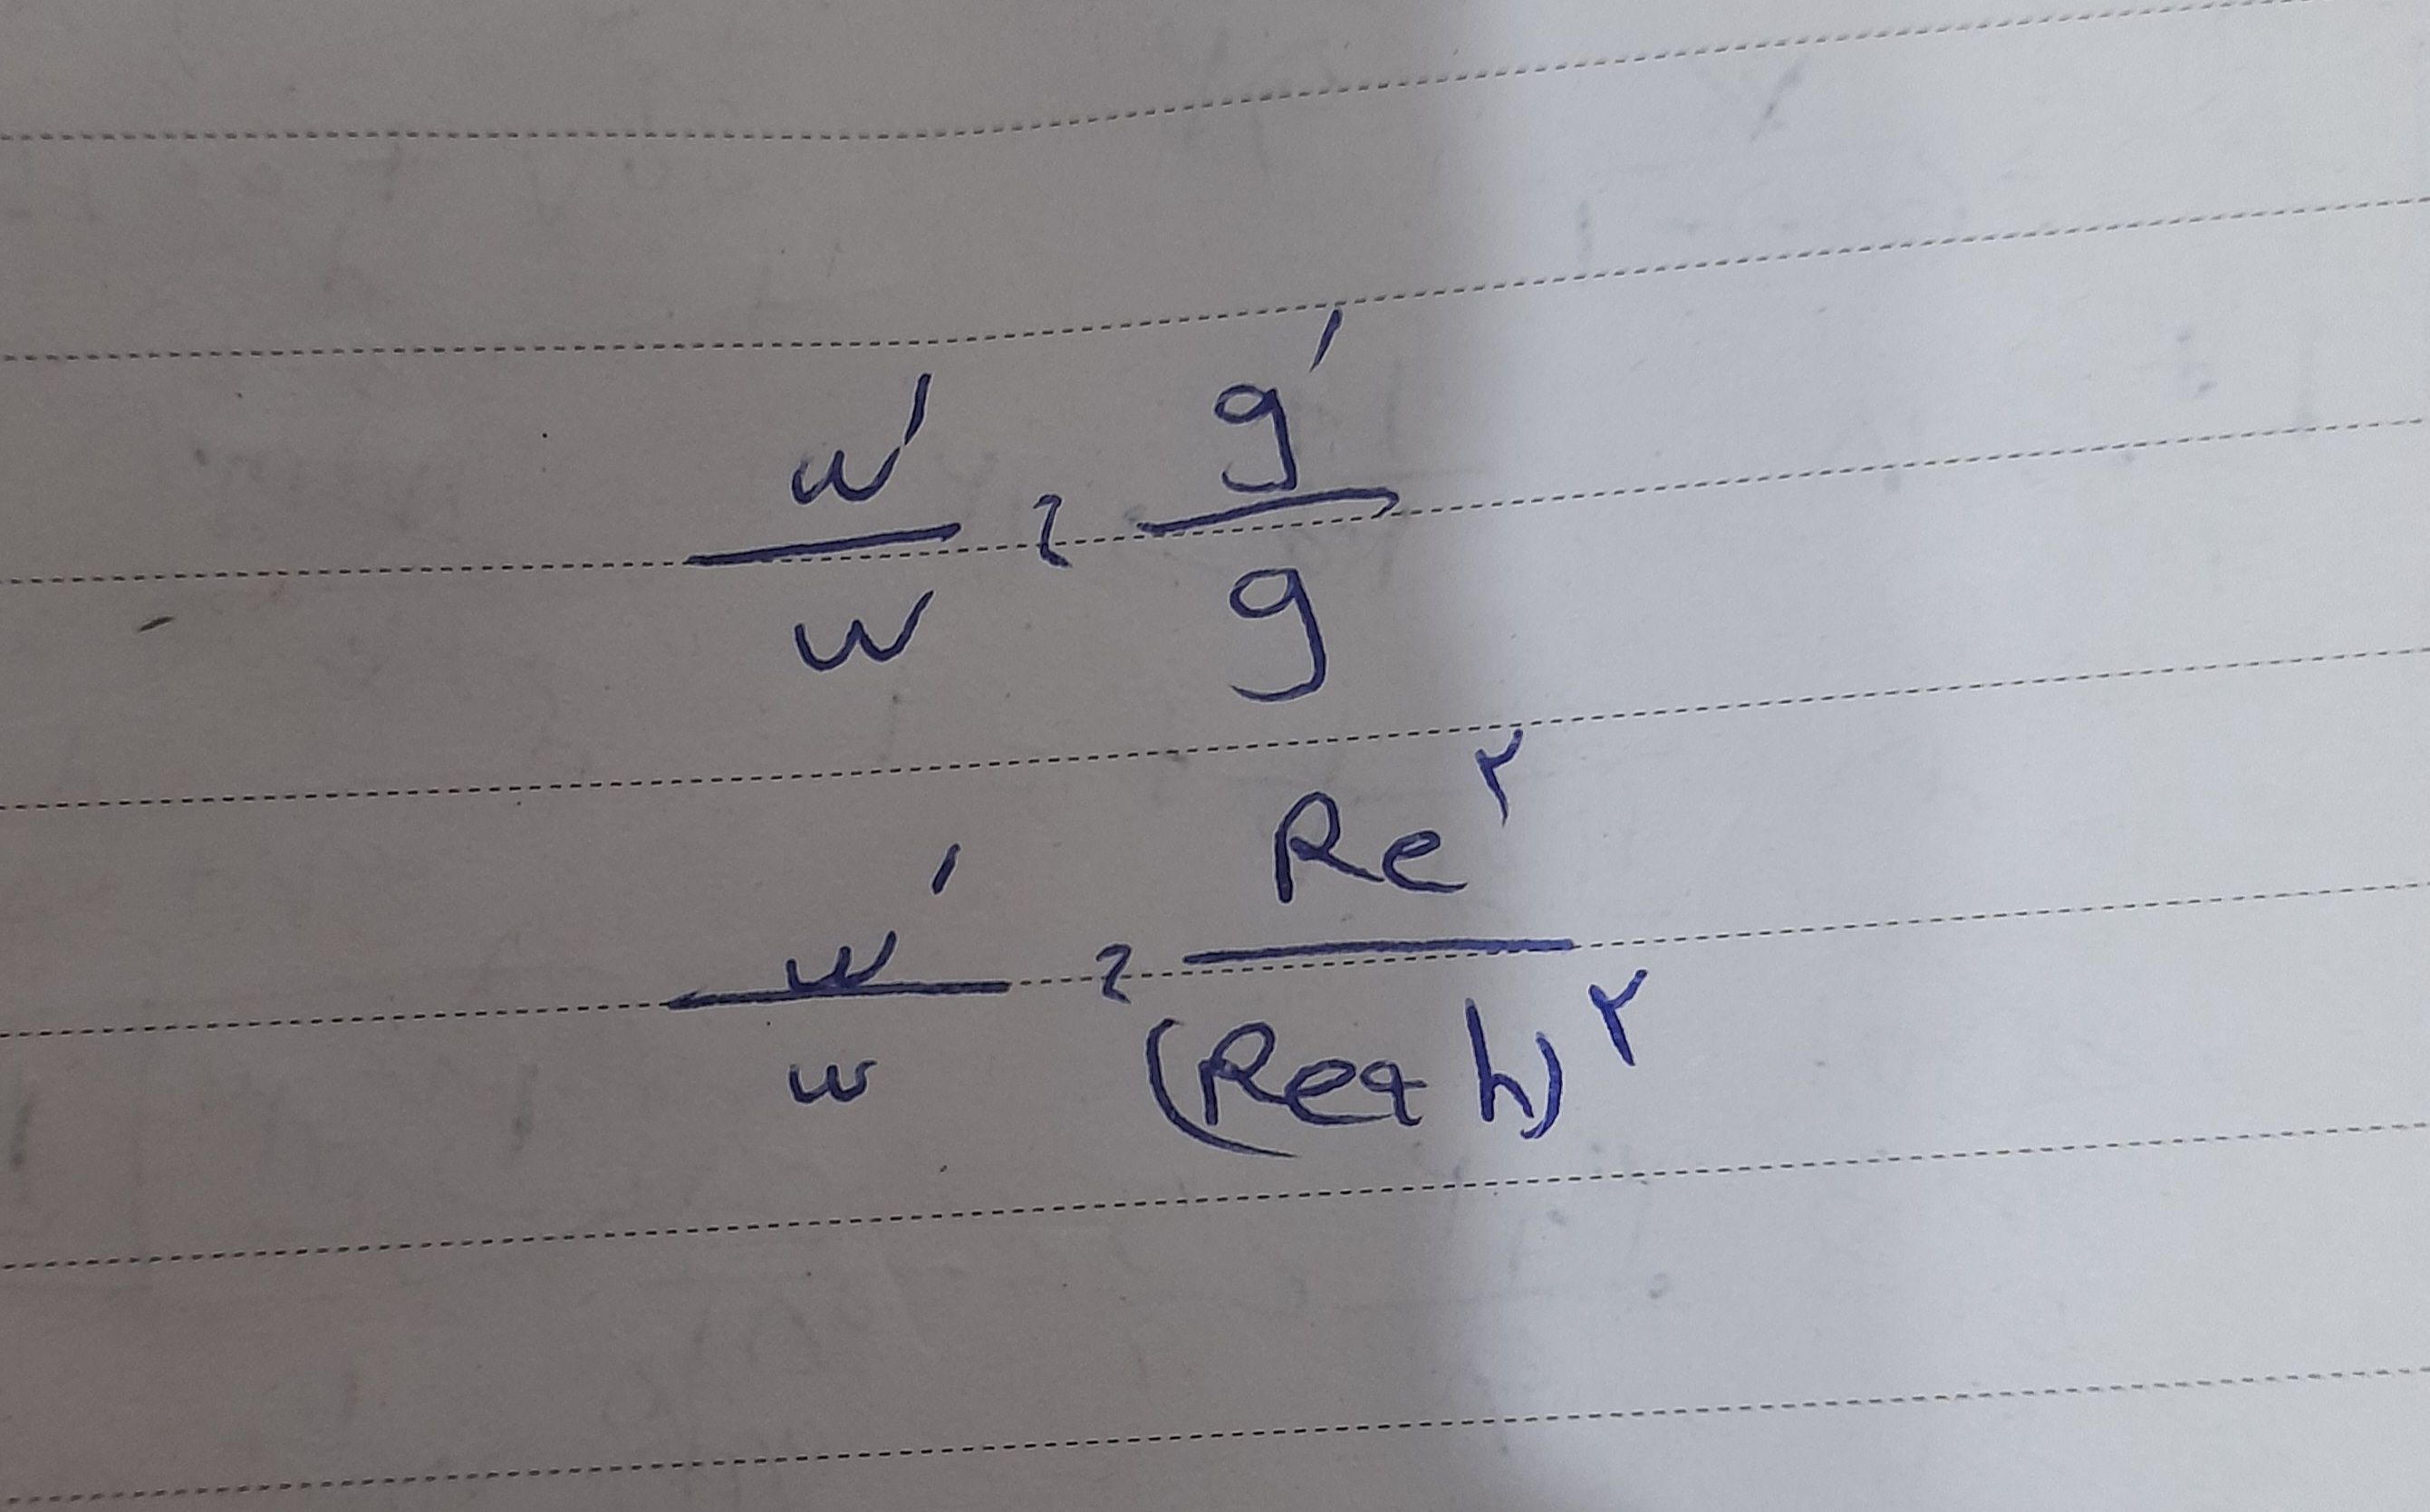 w'/w = g'/g
w'/w = Re^۲/(Re+h)^۲